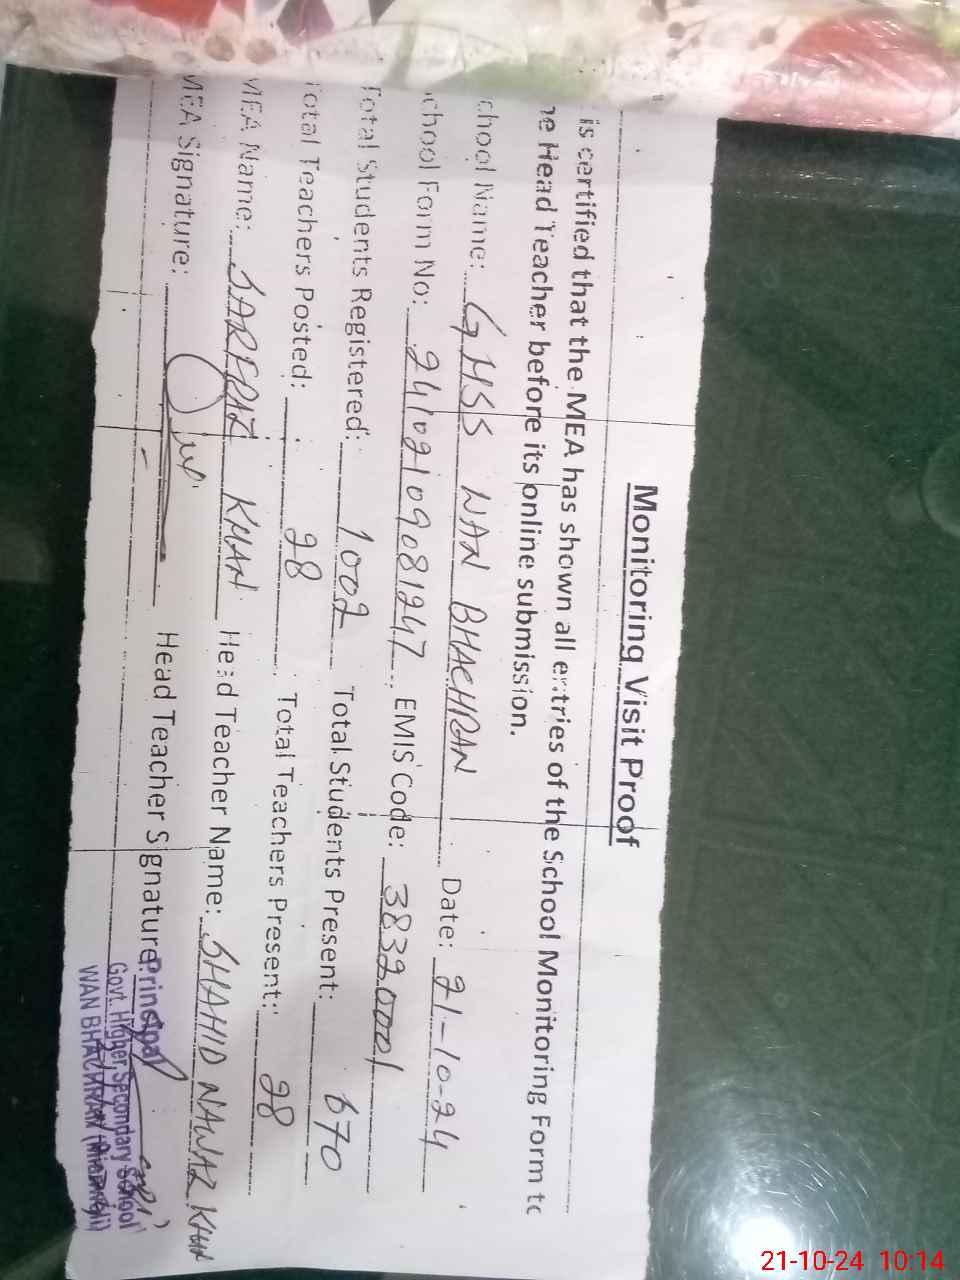 Monitoring Visit Proof
is certified that the MEA has shown all entries of the School Monitoring Form to
he Head Teacher before its online submission.
chool Name: GHSS WAN BHACHRAN Date: 21-10-24
chool Form No: 24102109081247 EMIS Code: 38320001
Total Students Registered: 1002 Total Students Present: 670
Total Teachers Posted: 28 Total Teachers Present: 28
MEA Name: SARFRAZ KHAN Head Teacher Name: SHAHID NAWAZ KHAN
MEA Signature: Head Teacher Signature:
Principal
Govt. Higher Secondary School
WAN BHACHRAN (Mianwali)
21-10-24 10:14